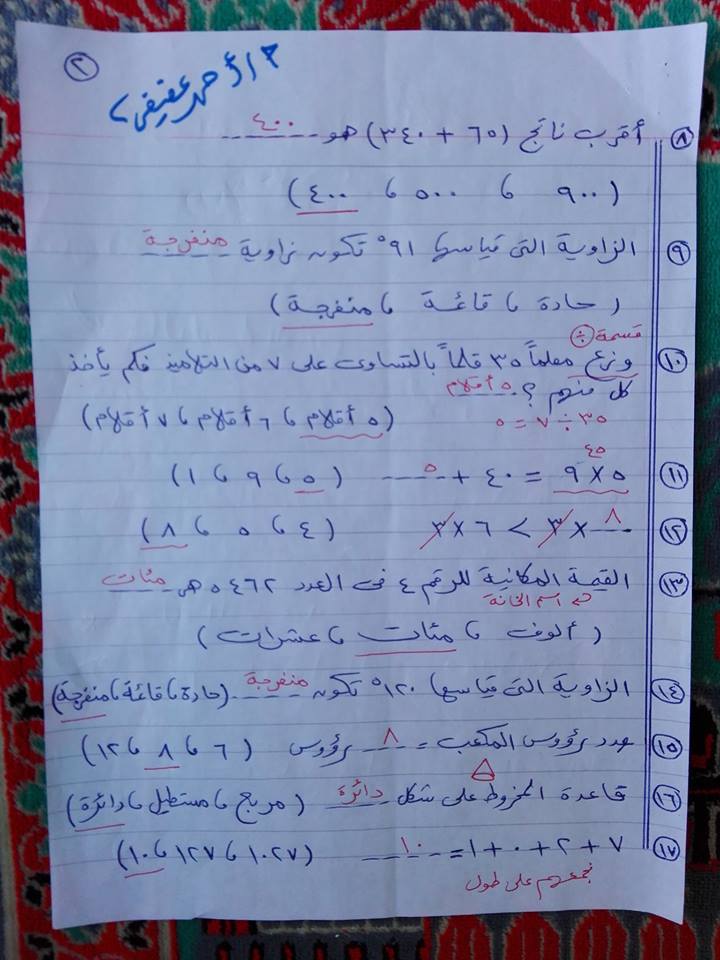 ٢
م / أحمد عفيفي
٨ أقرب ناتج (٦٥ + ٣٤٠) هو ٤٠٠
(٩٠٠ ، ٥٠٠ ، ٤٠٠)
٩ الزاوية التى قياسها ٩١° تكون زاوية منفرجة
(حادة ، قائمة ، منفرجة)
قسمة ÷
١٠ وزع معلماً ٣٥ قلماً بالتساوى على ٧ من التلاميذ فكم يأخذ
كل منهم ؟ ٥ أقلام
٣٥ ÷ ٧ = ٥
(٥ أقلام ، ٦ أقلام ، ٧ أقلام)
٤٥
١١ ٥ × ٩ = ٤٠ + ٥ (٥ ، ٩ ، ١)
١٢ ٨ × ٣ > ٦ × ٣ (٤ ، ٥ ، ٨)
١٣ القيمة المكانية للرقم ٤ فى العدد ٥٤٦٢ هى مئات
اسم الخانة
(ألوف ، مئات ، عشرات)
١٤ الزاوية التى قياسها ١٢٠° تكون منفرجة (حادة ، قائمة ، منفرجة)
١٥ عدد رؤوس المكعب = ٨ رؤوس (٦ ، ٨ ، ١٢)
١٦ قاعدة المخروط على شكل دائرة (مربع ، مستطيل ، دائرة)
١٧ ٧ + ٢ + ٠ + ١ = ١٠ (١٠٢٧ ، ١٢٧ ، ١٠)
نجمعهم على طول